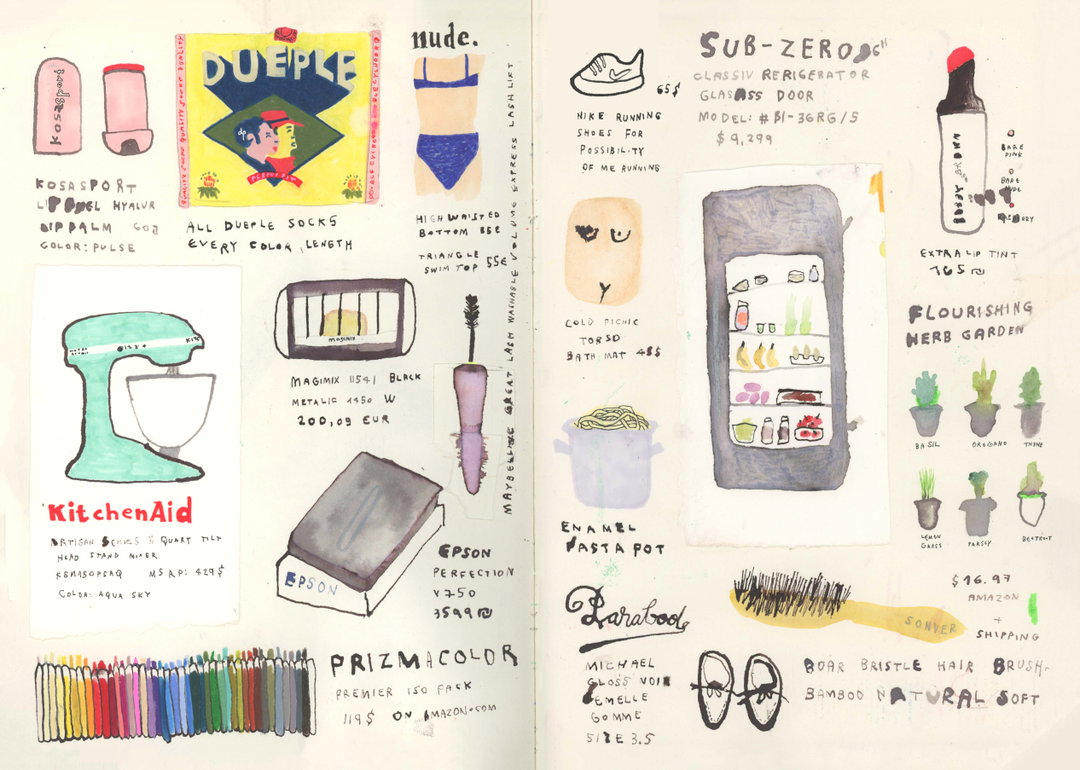 kosasport
KOSASPORT
LIP FUEL HYALUR
LIP BALM
COLOR: PULSE
DUEPLE
ALL DUEPLE SOCKS
EVERY COLOR, LENGTH
nude.
HIGH WAISTED
BOTTOM 85€
TRIANGLE
SWIM TOP 55€
MAYBELLINE GREAT LASH WASHABLE VOLUME EXPRESS LASH LIFT
KitchenAid
ARTISAN SERIES 5 QUART TILT
HEAD STAND MIXER
KSM150PSAQ MSRP: 429$
COLOR: AQUA SKY
MAGIMIX
MAGIMIX 11541 BLACK
METALIC 1450 W
200,09 EUR
EPSON
EPSON
PERFECTION
V750
3599₪
PRIZMACOLOR
PREMIER 150 PACK
119$ ON AMAZON.COM
65$
NIKE RUNNING
SHOES FOR
POSSIBILITY
OF ME RUNNING
COLD PICNIC
TORSO
BATH MAT 48$
ENAMEL
PASTA POT
Paraboot
MICHAEL
GLOSS NOIR
SEMELLE
GOMME
SIZE 3.5
SUB-ZERO 36"
CLASSIV RERIGERATOR
GLASASS DOOR
MODEL: #BI-36RG/S
$9,299
BOBBY BROWN
BARE
PINK
BARE
EXTRA LIP TINT
165₪
FLOURISHING
HERB GARDEN
BASIL
OREGANO
THYME
LEMON
GRASS
PARSLY
BEETROOT
SONVER
$16.97
AMAZON
+
SHIPPING
BOAR BRISTLE HAIR BRUSH-
BAMBOO NATURAL SOFT